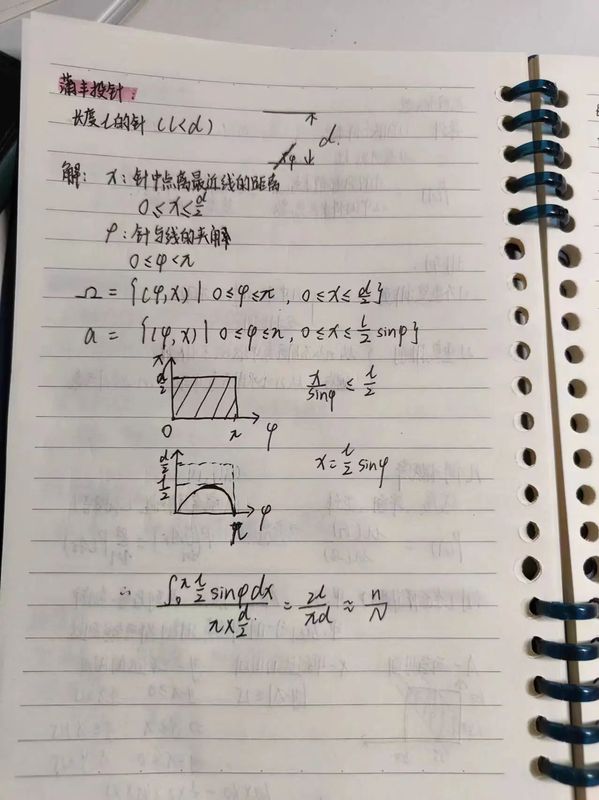 蒲丰投针:
长度l的针 (l<d)
d.
xφ
解: x: 针中点离最近线的距离
0≤x≤d/2
φ: 针与线的夹角
0≤φ<π
Ω = {(φ,x) | 0≤φ≤π, 0≤x≤d/2}
a = {(φ,x) | 0≤φ≤π, 0≤x≤l/2 sinφ}
x
d/2
0 π φ
x/sinφ ≤ l/2
d/2
l/2
π φ
x = l/2 sinφ
∴ ∫₀^π l/2 sinφ dx / π×d/2. = 2l/πd ≈ n/N